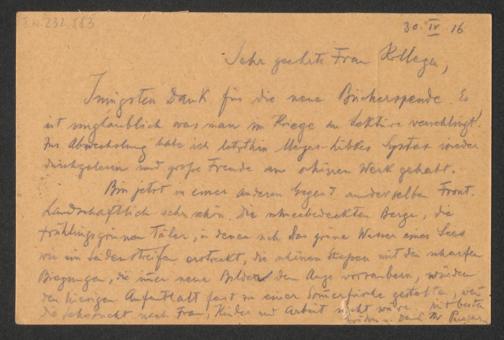 I.N. 231.883
30. IV 16
Sehr geehrte Frau Kollega,
Innigsten Dank für die neue Bücherspende. Es
ist unglaublich was man im Kriege an Lektüre verschlingt!
Zur Abwechslung habe ich letzthin Meyer-Lübkes Syntax wieder
durchgelesen und große Freude am schönen Werk gehabt.
Bin jetzt in einer anderen Gegend an derselben Front.
Landschaftlich sehr schön, die schneebedeckten Berge, die
frühlingsgrünen Täler, in denen sich das grüne Wasser eines Sees
wie ein Seidenstreifen erstreckt, die schönen Strassen mit den scharfen
Biegungen, die immer neue Bilder dem Auge vorzaubern, würden
den hiesigen Aufenthalt fast zu einer Sommerfrische gestalten, wenn
die Sehnsucht nach Frau, Kinder und Arbeit nicht wäre. Mit besten
Grüßen u. Dank Ihr